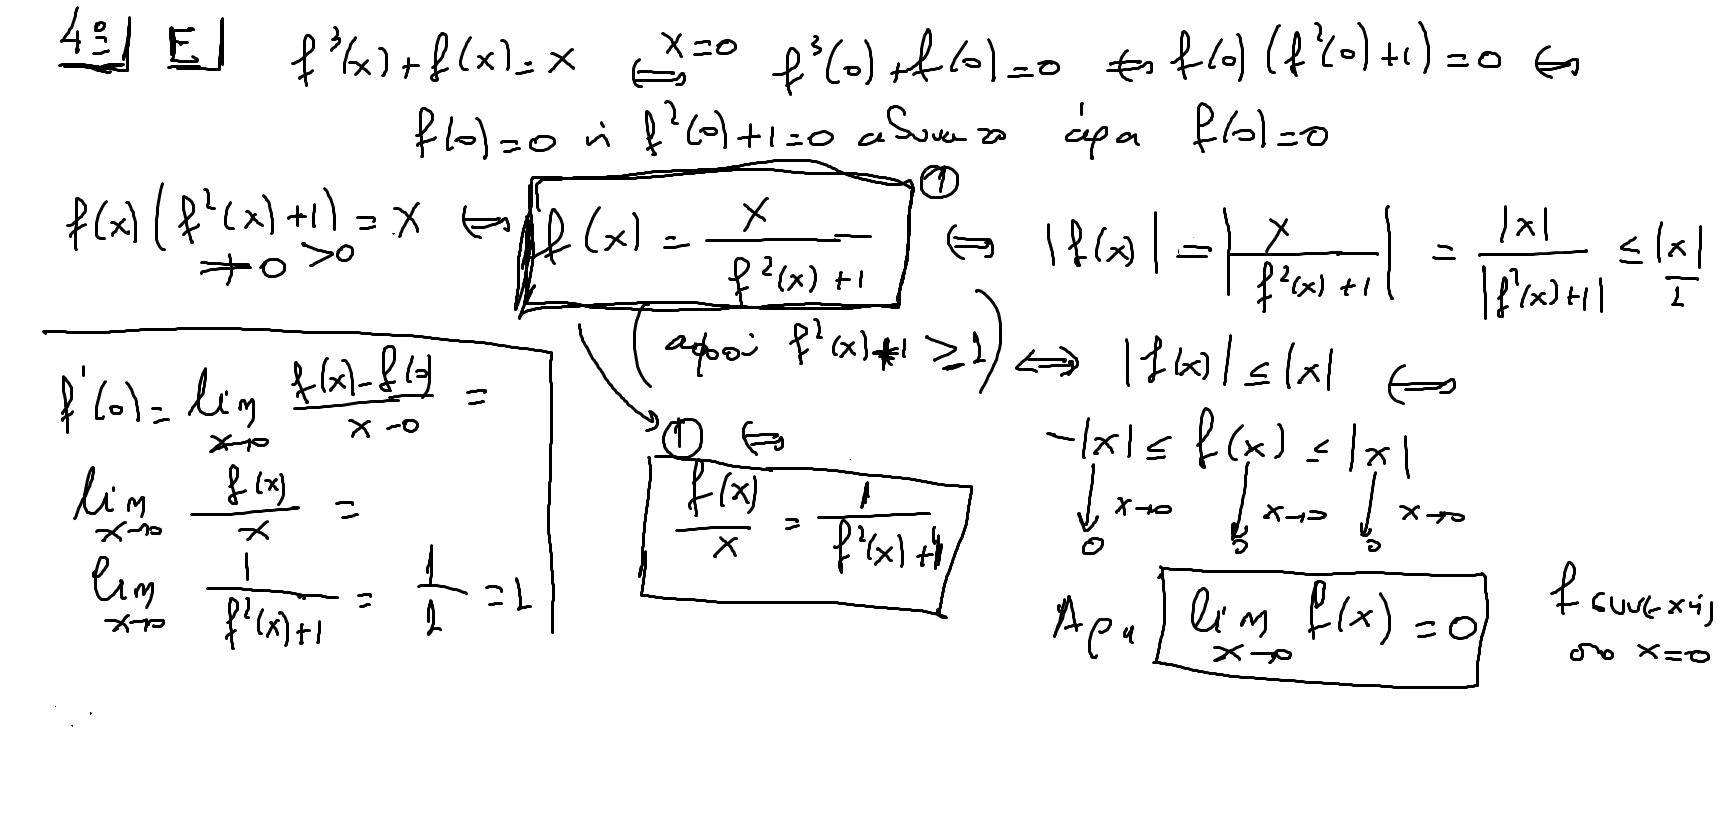 4º] E] f³(x)+f(x)=x ⇔ x=0 f³(0)+f(0)=0 ⇔ f(0)(f²(0)+1)=0 ⇔
f(0)=0 ή f²(0)+1=0 αδυνατο άρα f(0)=0
f(x)(f²(x)+1)=x ⇔ f(x)=x/(f²(x)+1) ① ⇔ |f(x)|=|x/(f²(x)+1)|=|x|/|f²(x)+1|≤|x|/1
≠0 >0
(αφού f²(x)+1≥1) ⇔ |f(x)|≤|x| ⇔
-|x|≤f(x)≤|x|
↓x→0 ↓x→0 ↓x→0
0 0 0
Αρα lim x→0 f(x)=0 f συνεχής
στο x=0
① ⇔
f(x)/x=1/(f²(x)+1)
f'(0)=lim x→0 (f(x)-f(0))/(x-0)=
lim x→0 f(x)/x=
lim x→0 1/(f²(x)+1)=1/1=1